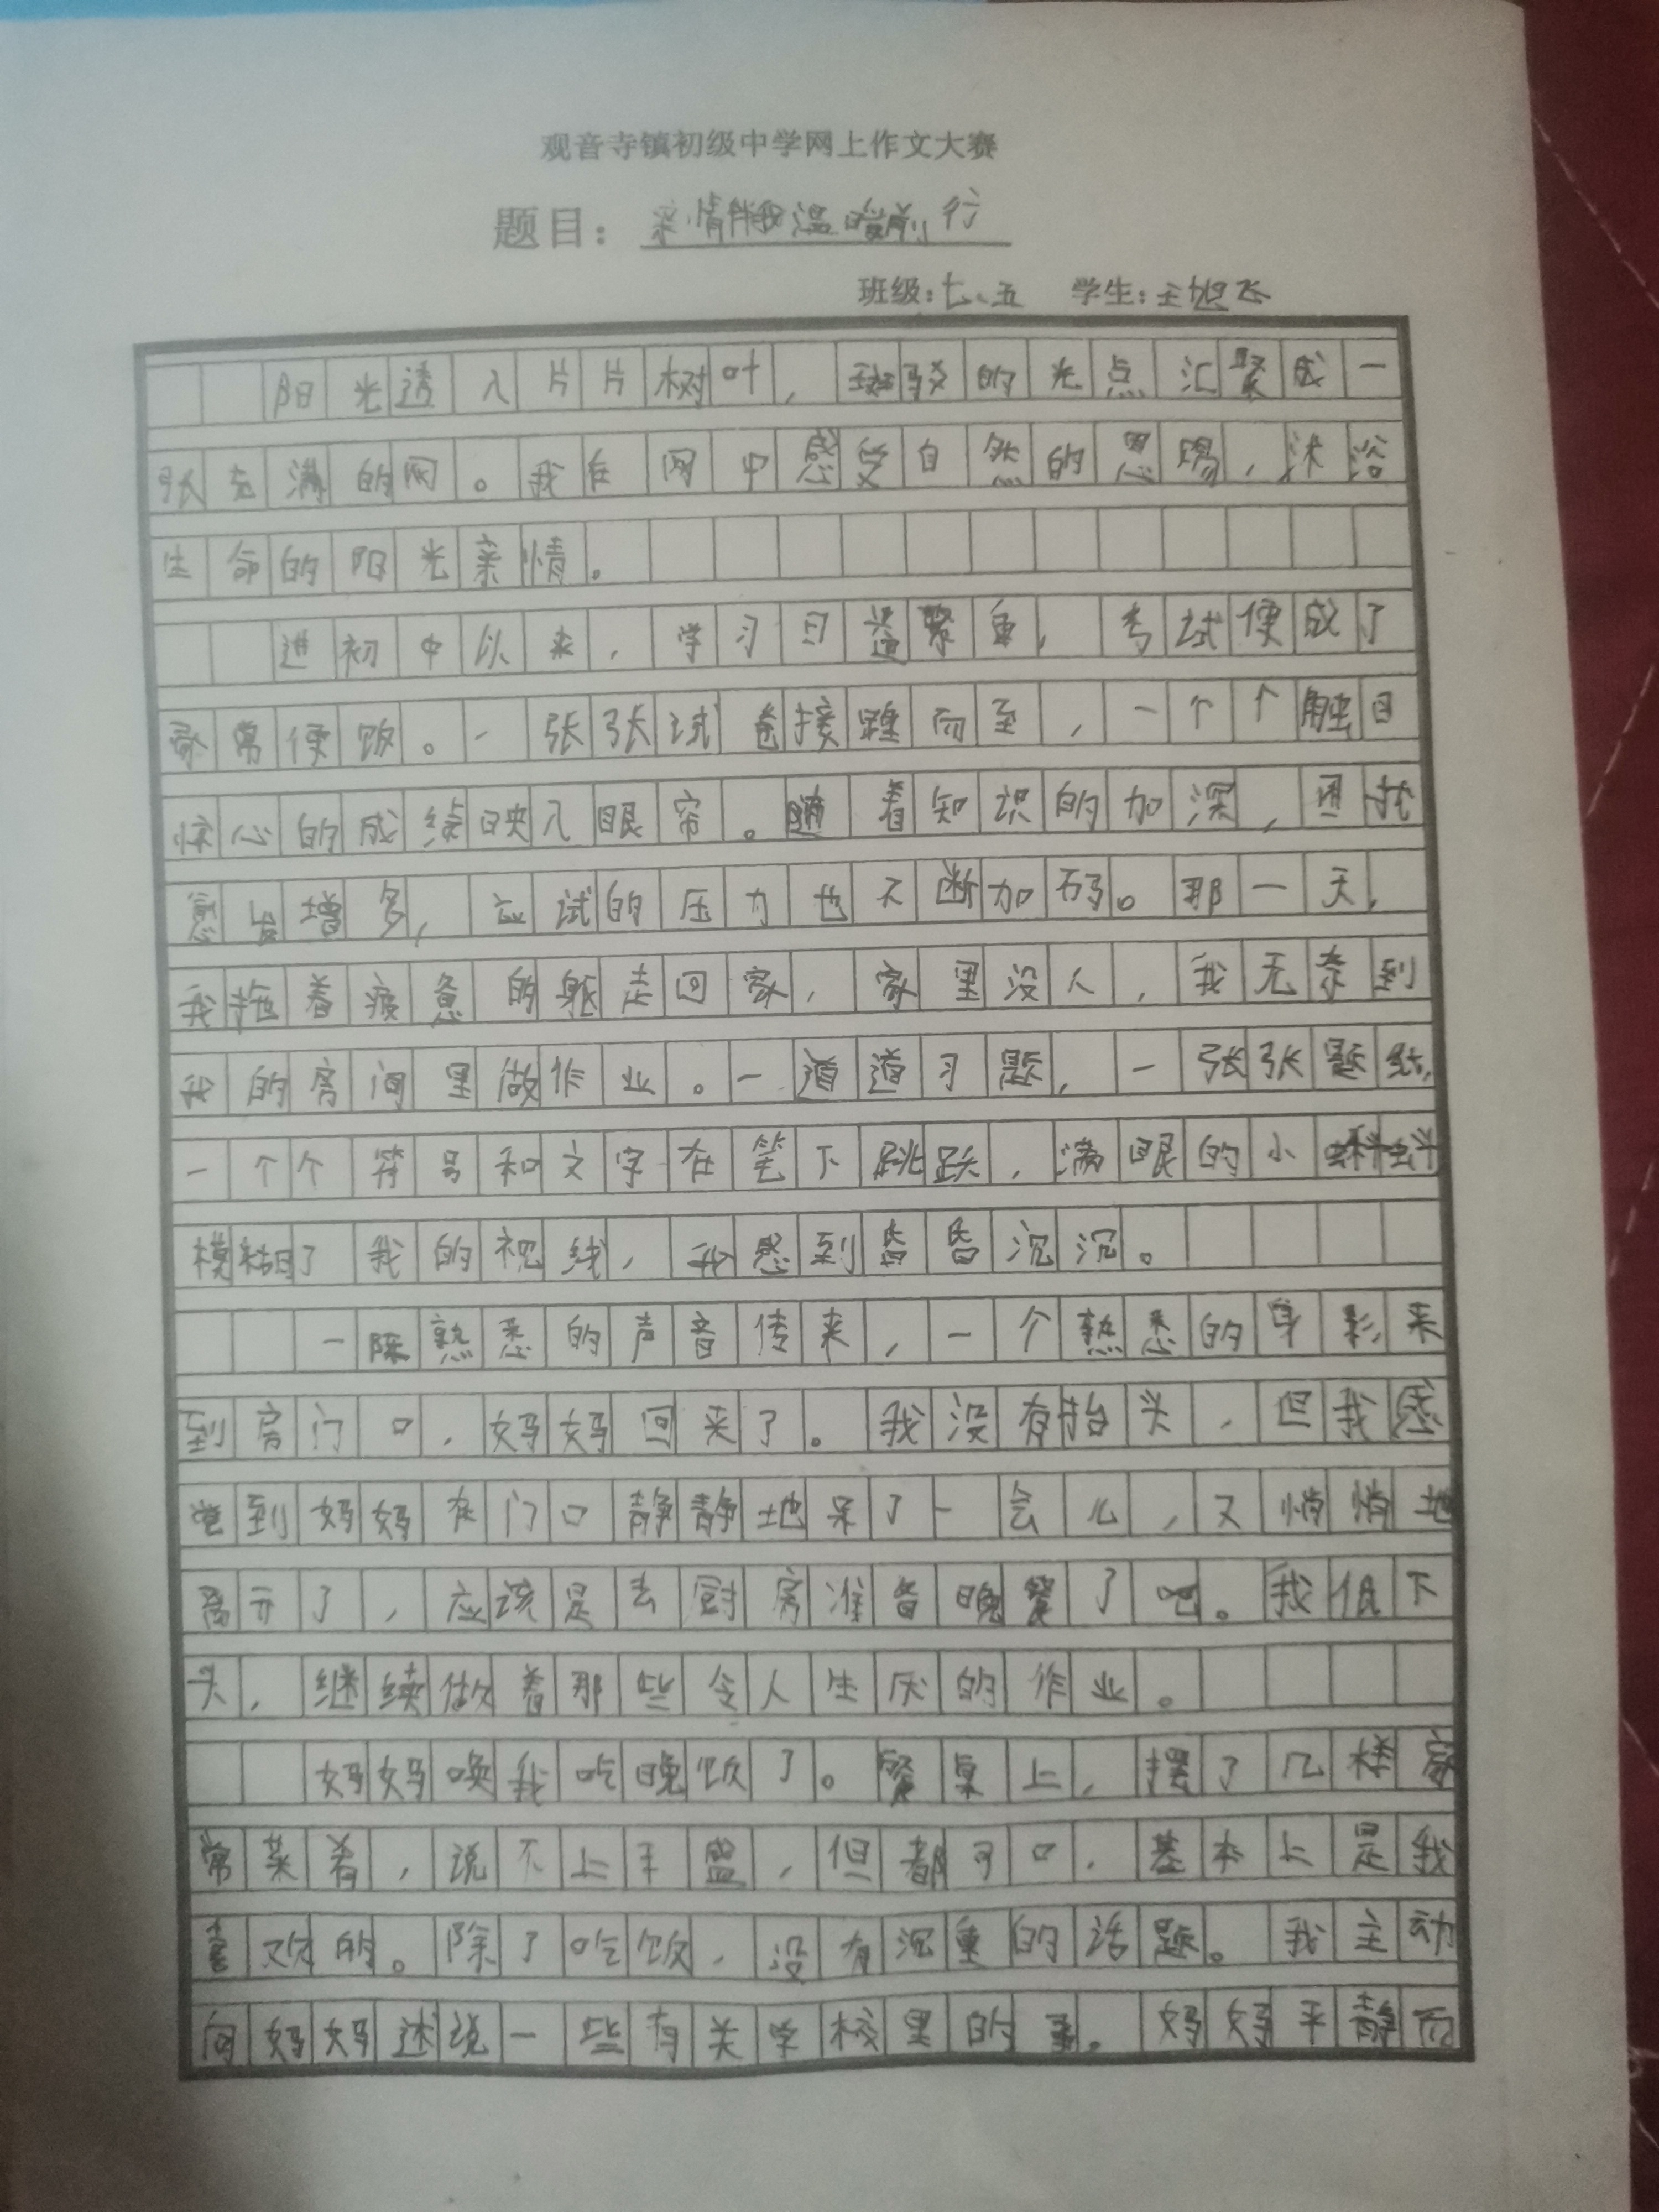 观音寺镇初级中学网上作文大赛
题目：亲情伴我温暖前行
班级：七、五 学生：王旭飞
阳光透入片片树叶，斑驳的光点汇聚成一
张充满的网。我在网中感受自然的恩赐，沐浴
生命的阳光亲情。
进初中以来，学习日益繁重，考试便成了
家常便饭。一张张试卷接踵而至，一个个触目
惊心的成绩映入眼帘。随着知识的加深，困扰
愈发增多，应试的压力也不断加码。那一天，
我拖着疲惫的躯走回家，家里没人，我无奈到
我的房间里做作业。一道道习题，一张张题纸，
一个个符号和文字在笔下跳跃，满眼的小蝌蚪
模糊了我的视线，我感到昏昏沉沉。
一阵熟悉的声音传来，一个熟悉的身影来
到房门口，妈妈回来了。我没有抬头，但我感
觉到妈妈在门口静静地呆了一会儿，又悄悄地
离开了，应该是去厨房准备晚餐了吧。我低下
头，继续做着那些令人生厌的作业。
妈妈唤我吃晚饭了。餐桌上，摆了几样家
常菜肴，说不上丰盛，但都可口，基本上是我
喜欢的。除了吃饭，没有沉重的话题。我主动
向妈妈述说一些有关学校里的事。妈妈平静而